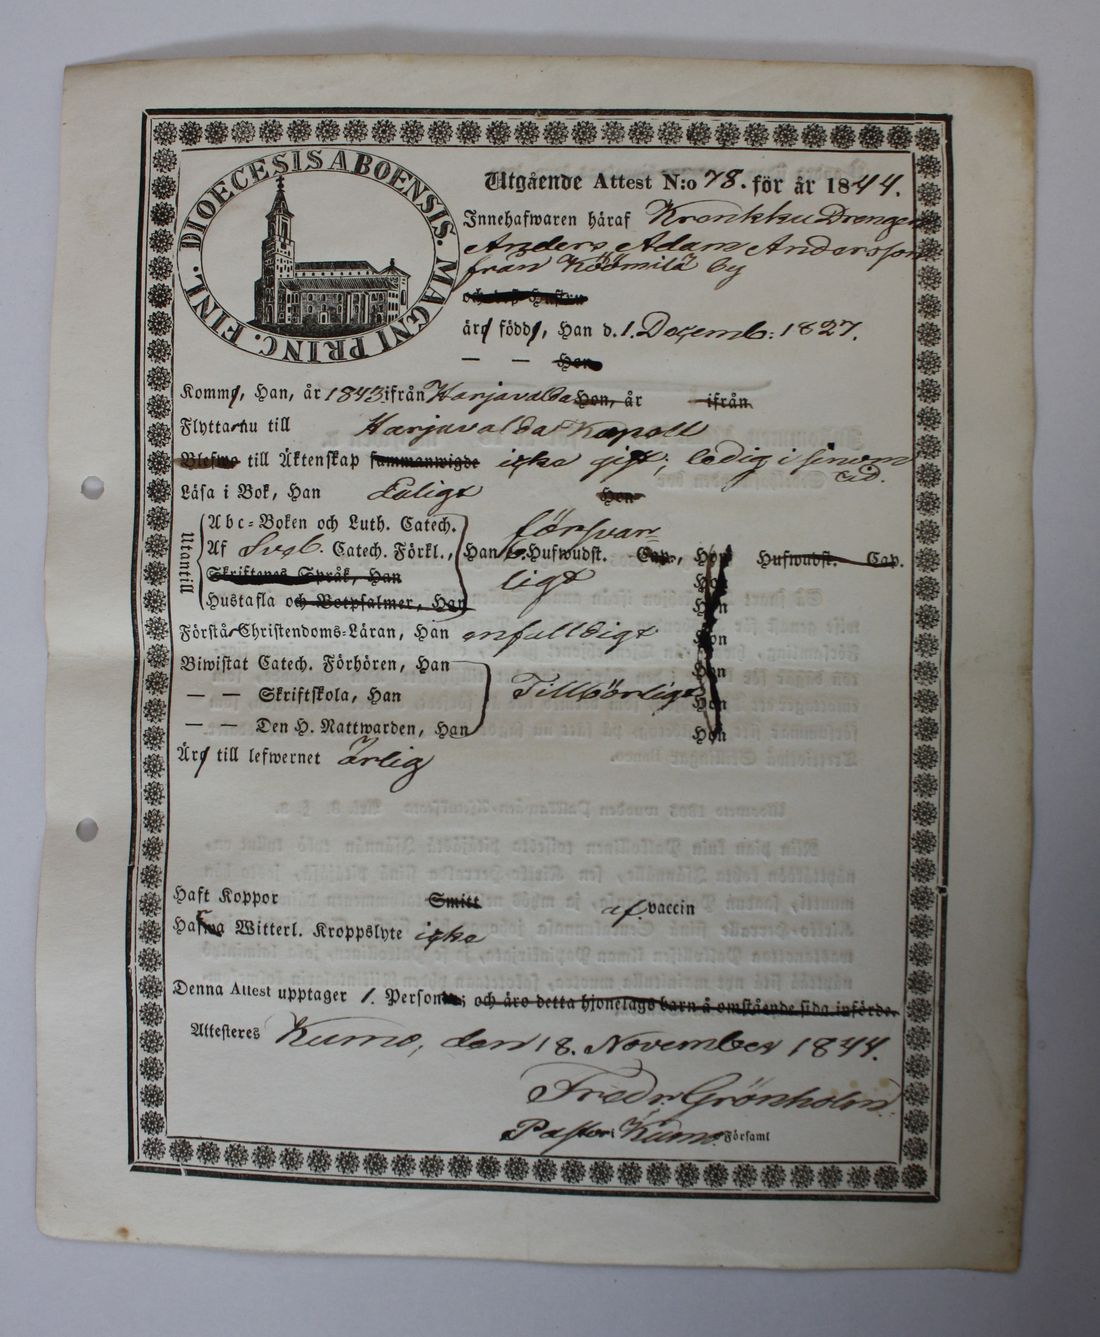 DIOECESIS ABOENSIS. MAGNI PRINC. FINL.
Utgående Attest N:o 78. för år 1844.
Innehafwaren häraf Krankku Drengen
Anders Adam Andersson
från Köömilä by
och dess Hustru
äro född, Han d. 1. Decemb: 1827.
— — Hon
Komm, Han, år 1843 ifrån Harjavalda Hon, år ifrån
Flyttar nu till Harjavalda Kapell
Blefwo till Äktenskap sammanwigde icke gift, ledig i sinom
tid.
Läsa i Bok, Han Faligt Hon
Utantill
Abc-Boken och Luth. Catech. försvar-
Af Sveb. Catech. Förkl., Han 6. Hufwudst. Cap., Hon Hufwudst. Cap.
Skriftenes Språk, Han ligt Hon
Hustafla och Botpsalmer, Han Hon
Förstår Christendoms-Läran, Han enfalldigt Hon
Biwistat Catech. Förhören, Han Hon
— — Skriftskola, Han Tillbörligt Hon
— — Den H. Nattwarden, Han Hon
Äro till lefwernet Ärlig
Haft Koppor Smitt af vaccin
Hafwa Witterl. Kroppslyte icke
Denna Attest upptager 1. Person; och äro detta hjonelags barn å omstående sida införde.
Attesteres Kumo, den 18. November 1844.
Fredr Grönholm
Pastor i Kumo Församl